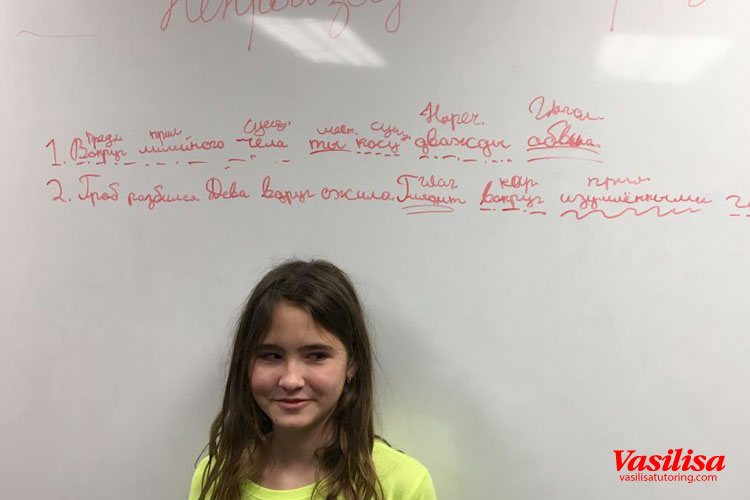 предл. прил. сущ. мест. сущ. Нареч. Глагол.
1. Вокруг лилийного чела ты косу дважды обвила.
Глаг нар прил
2. Гроб разбился. Дева вдруг ожила. Глядит вокруг изумлёнными
Vasilisa
vasilisatutoring.com